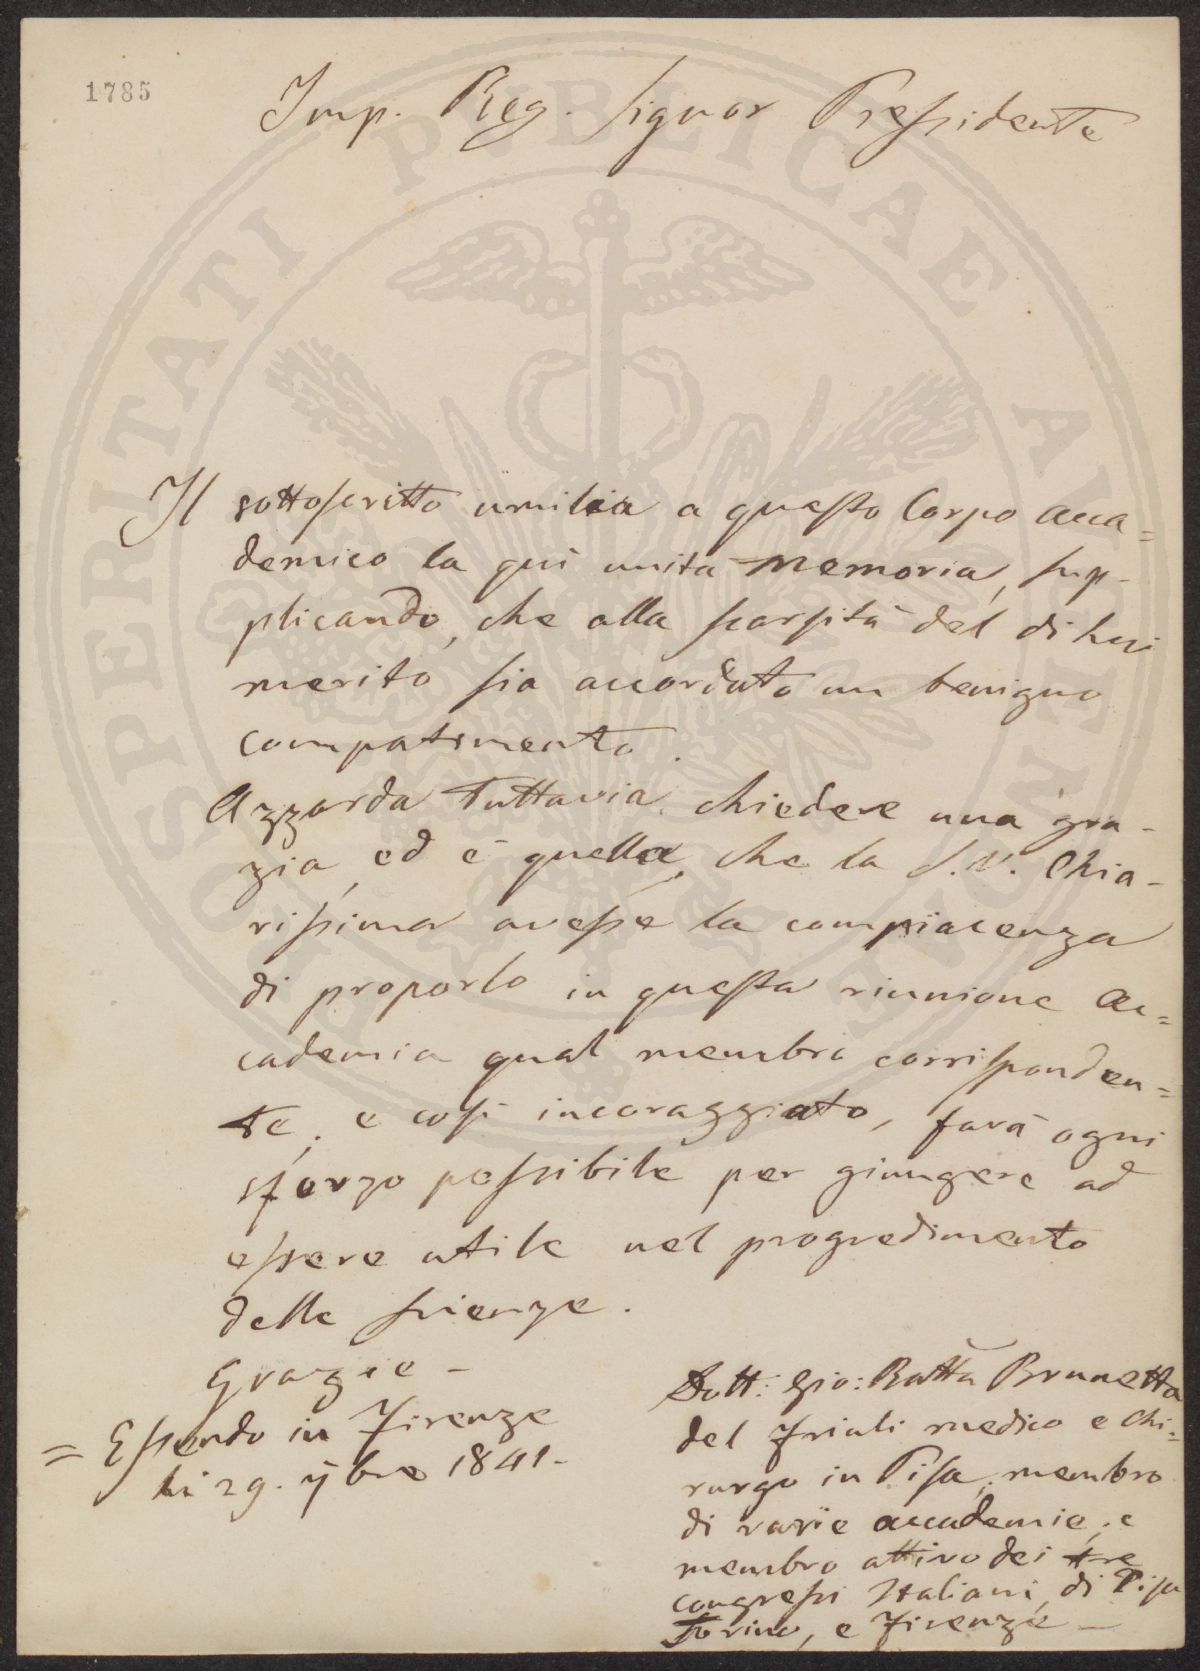 1785
Imp. Reg. Signor Pressidente
Il sottoscritto umilia a questo Corpo acca=
demico la quì unita memoria, sup-
plicando, che alla scarsità del di lui
merito sia accordato un benigno
compatimento.
Azzarda tuttavia chiedere una gra-
zia, ed è quella, che la S.V. Chia-
rissima avesse la compiacenza
di proporlo in questa riunione Ac=
cademia qual membro corrisponden=
te, e così incoraggiato, farà ogni
sforzo possibile per giungere ad
essere utile nel progredimento
delle scienze.
Grazie -
= Essendo in Firenze
li 29. 7bre 1841.-
Dott: Gio: Batta Brunetta
del Friuli medico e chi=
rurgo in Pisa, membro
di varie accademie, e
membro attivo dei tre
congressi Italiani, di Pisa
Torino, e Firenze -
PROSPERITATI PUBLICAE AUGENDAE